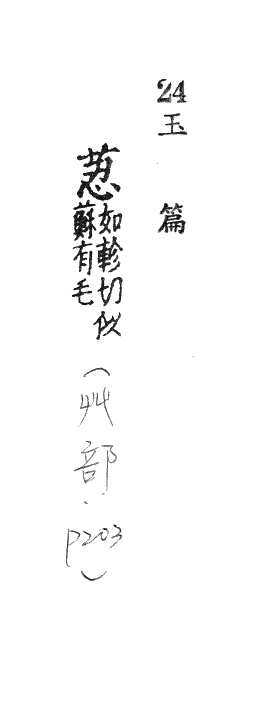 24
玉篇
荵
如軫切似
蘇有毛
(艸部.P203)